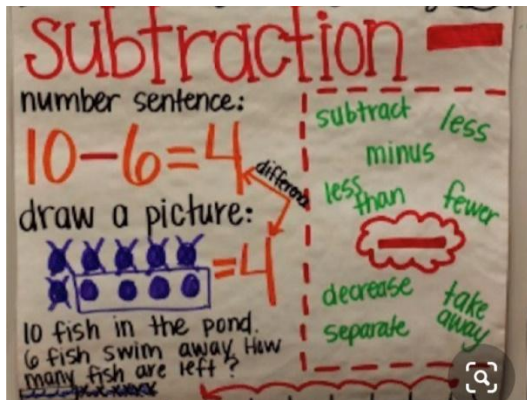 subtraction -
number sentence:
10-6=4
difference
draw a picture:
=4
10 fish in the pond.
6 fish swim away. How
many fish are left?
subtract less
minus
less than fewer
-
decrease take away
separate